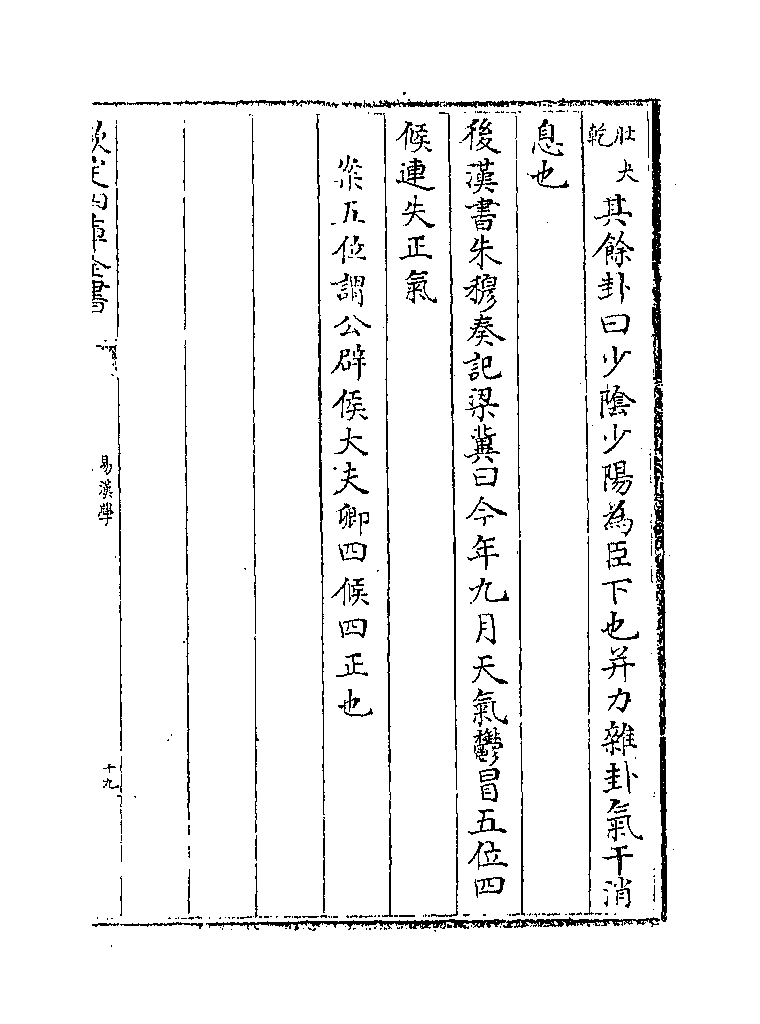 壯夬乾其餘卦曰少陰少陽為臣下也并力雜卦氣干消
息也
後漢書朱穆奏記梁冀曰今年九月天氣鬱冒五位四
候連失正氣
案五位謂公辟侯大夫卿四候四正也
欽定四庫全書
易漢學
十九